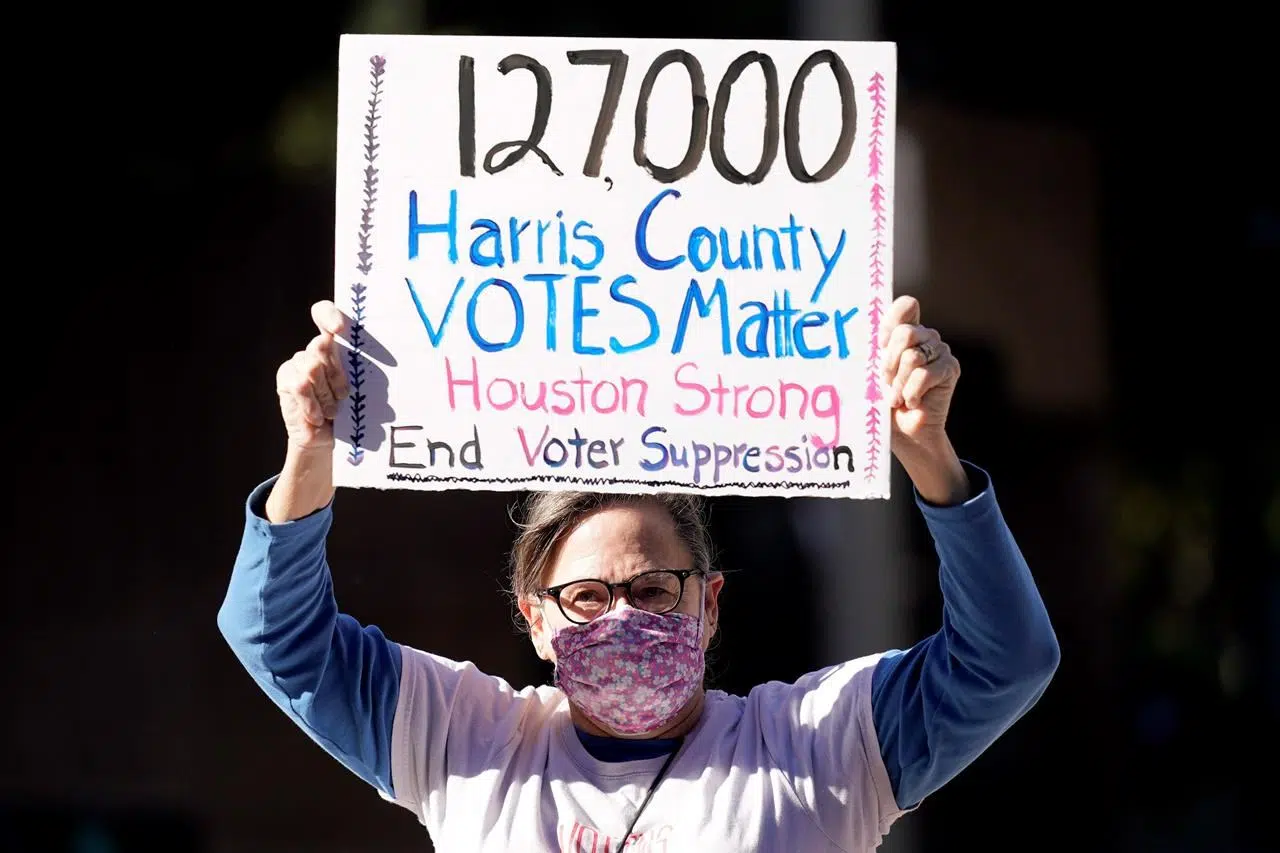 127,000
Harris County
VOTES Matter
Houston Strong
End Voter Suppression